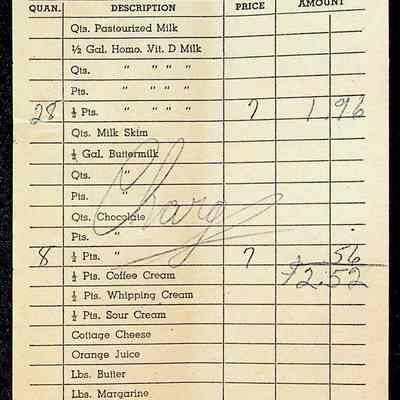 QUAN. DESCRIPTION PRICE AMOUNT
Qts. Pasteurized Milk
½ Gal. Homo. Vit. D Milk
Qts. " " " "
Pts. " " " "
28 ½ Pts. " " " " 7 1.96
Qts. Milk Skim
½ Gal. Buttermilk
Qts. "
Pts. "
Charg
Qts. Chocolate
Pts. "
8 ½ Pts. " 7 56
½ Pts. Coffee Cream $2.52
½ Pts. Whipping Cream
½ Pts. Sour Cream
Cottage Cheese
Orange Juice
Lbs. Butter
Lbs. Margarine